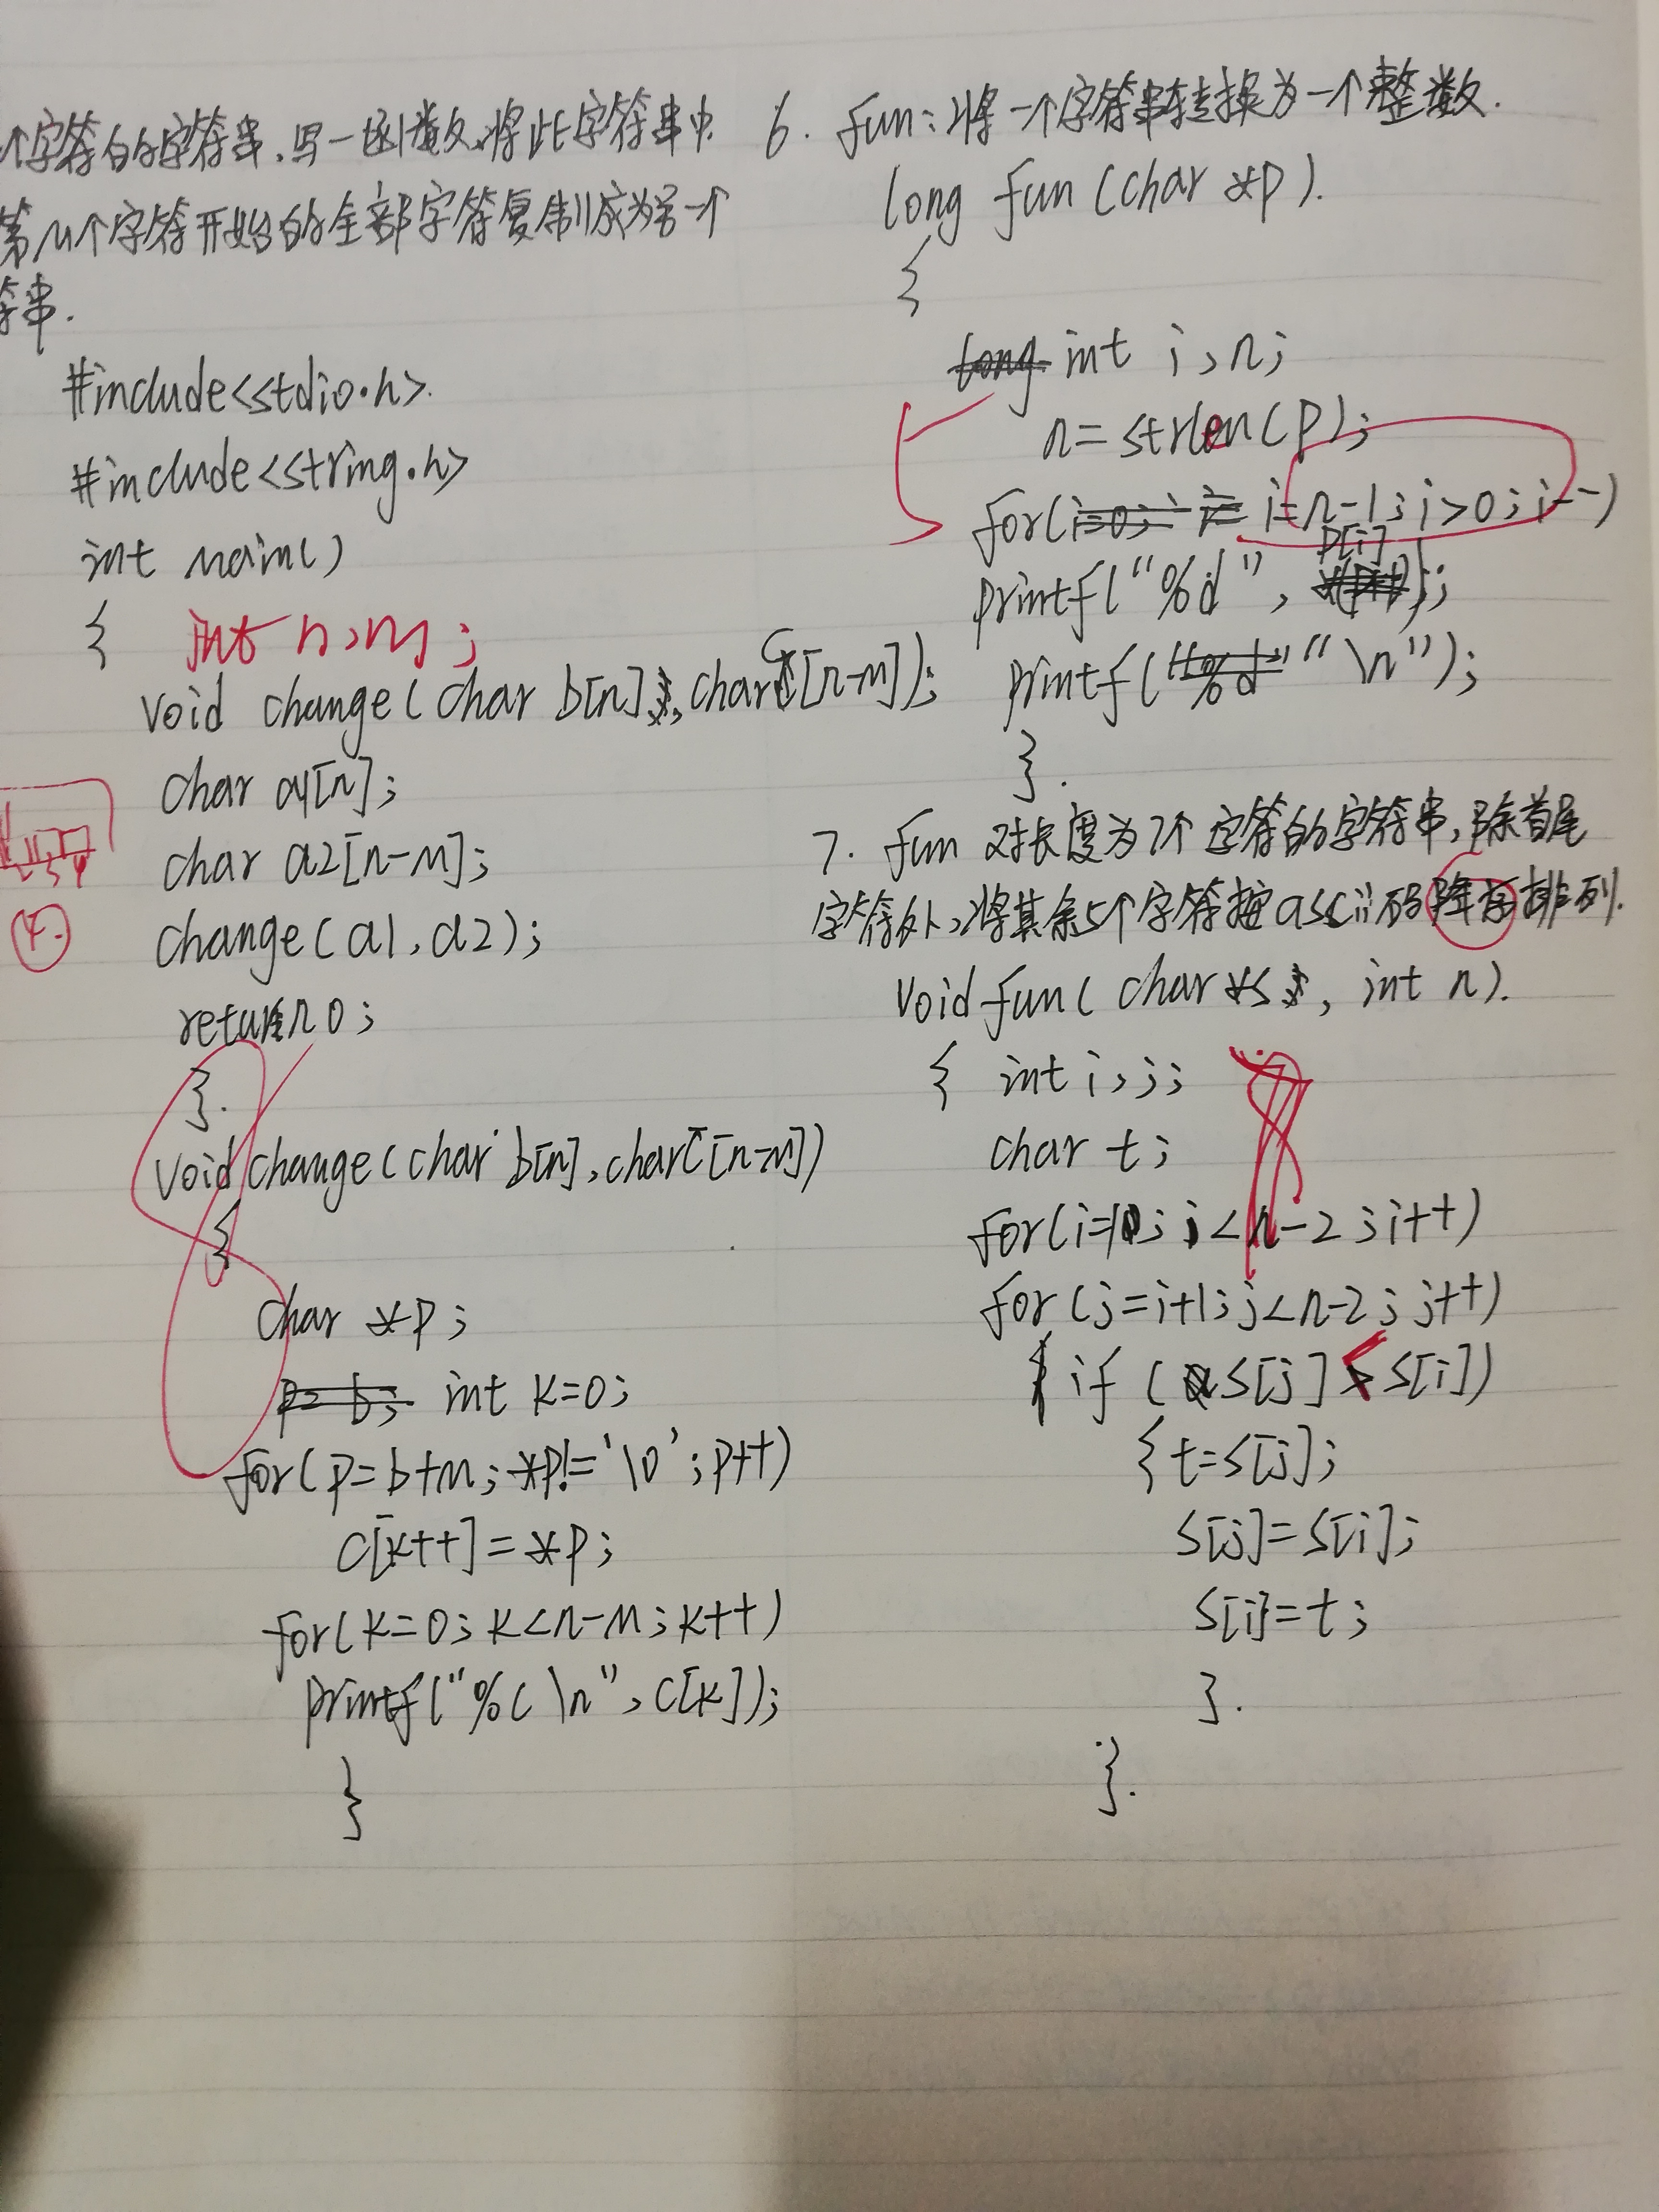 个字符的字符串,写一函数,将此字符串中
第m个字符开始的全部字符复制成为另一个
符串.
#include<stdio.h>.
#include<string.h>
int main()
{ int n,m;
void change(char b[n],char c[n-m]);
char a1[n];
char a2[n-m];
change(a1,a2);
return 0;
}.
void change(char b[n],char c[n-m])
{
char *p;
p=b; int k=0;
for(p=b+m;*p!='\0';p++)
c[k++]=*p;
for(k=0;k<n-m;k++)
printf("%c\n",c[k]);
}
4.
6. fun:将一个字符串转换为一个整数.
long fun(char *p).
{
long int i,n;
n=strlen(p);
for(i=0; i= i=n-1;i>0;i--)
printf("%d", p[i]);
printf("%d" "\n");
}.
7. fun 对长度为7个字符的字符串,除首尾
字符外,将其余5个字符按ascii码降序排列.
void fun(char *s, int n).
{ int i,j;
char t;
for(i=1;i<n-2;i++)
for(j=i+1;j<n-2;j++)
{if(s[j]<s[i])
{t=s[j];
s[j]=s[i];
s[i]=t;
}.
}.